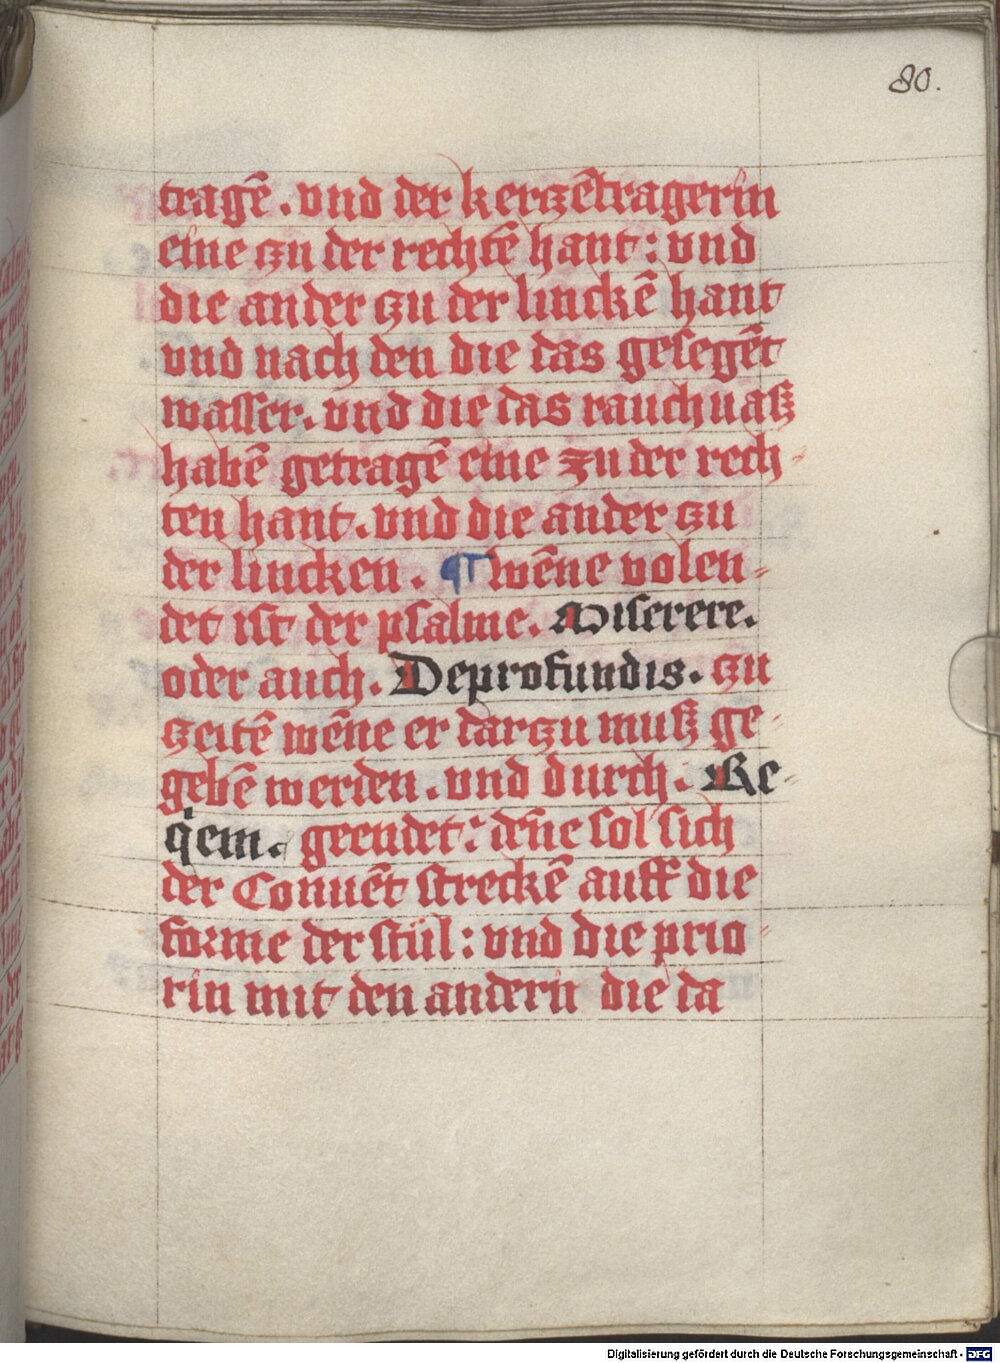 80.
tragē. vnd der kerzētragerin
eine czu der rechtē hant: vnd
die ander czu der linckē hant
vnd nach den die das gesegēt
wasser. vnd die das rauchuaß
habē getragē eine zu der rech
ten hant. vnd die ander czu
der lincken. ¶ wēne volen-
det ist der psalme. Miserere.
oder auch. Deprofundis. czu
czeitē wēne er darczu muß ge-
gebē werden. vnd durch. Re-
q̇em. geendet: dēne sol sich
der Conuēt streckē auff die
forme der stül: vnd die prio
rin mit den andern die da
Digitalisierung gefördert durch die Deutsche Forschungsgemeinschaft - DFG